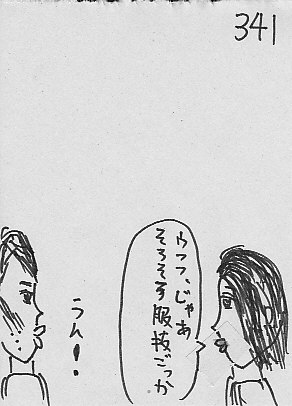 341
ウフフ、じゃあ
そろそろ服抜ごっか
うん!